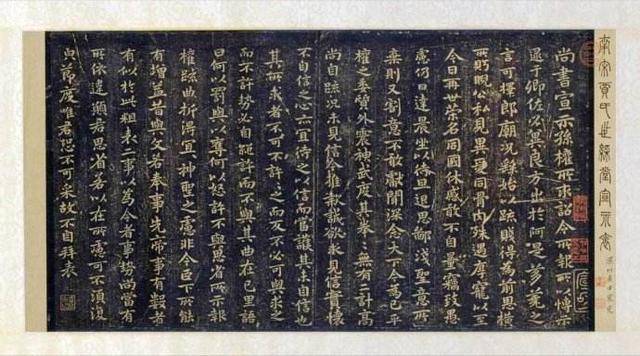 南宋賈氏世綵堂宣示表
尚書宣示孫權所求詔令所報所以博示
逮于卿佐必冀良方出於阿是芻蕘之
言可擇郎廟況繇始以疏賤得為前恩橫
所盼睨公私見異愛同骨肉殊遇厚寵以至
今日再世榮名同國休慼敢不自量竊致愚
慮仍日達晨坐以待旦退思鄙淺聖意所
棄則又割意不敢獻聞深念天下今為已平
權之委質外震神武度其拳拳無有二計高
尚自疏況未見信今推款誠欲求見信實懷
不自信之心亦宜待之以信而當護其未自信也
其所求者不可不許許之而反不必可與求之
而不許勢必自絕許而不與其曲在己里語
曰何以罰與以奪何以怒許不與思省所示報
權疏曲折得宜宜神聖之慮非今臣下所能
有增益昔與文若奉事先帝事有數者
有似於此粗表二事以為今者事勢尚當有
所依違願君思省若以在所慮可不須復
與節度唯君恐不可采故不自拜表